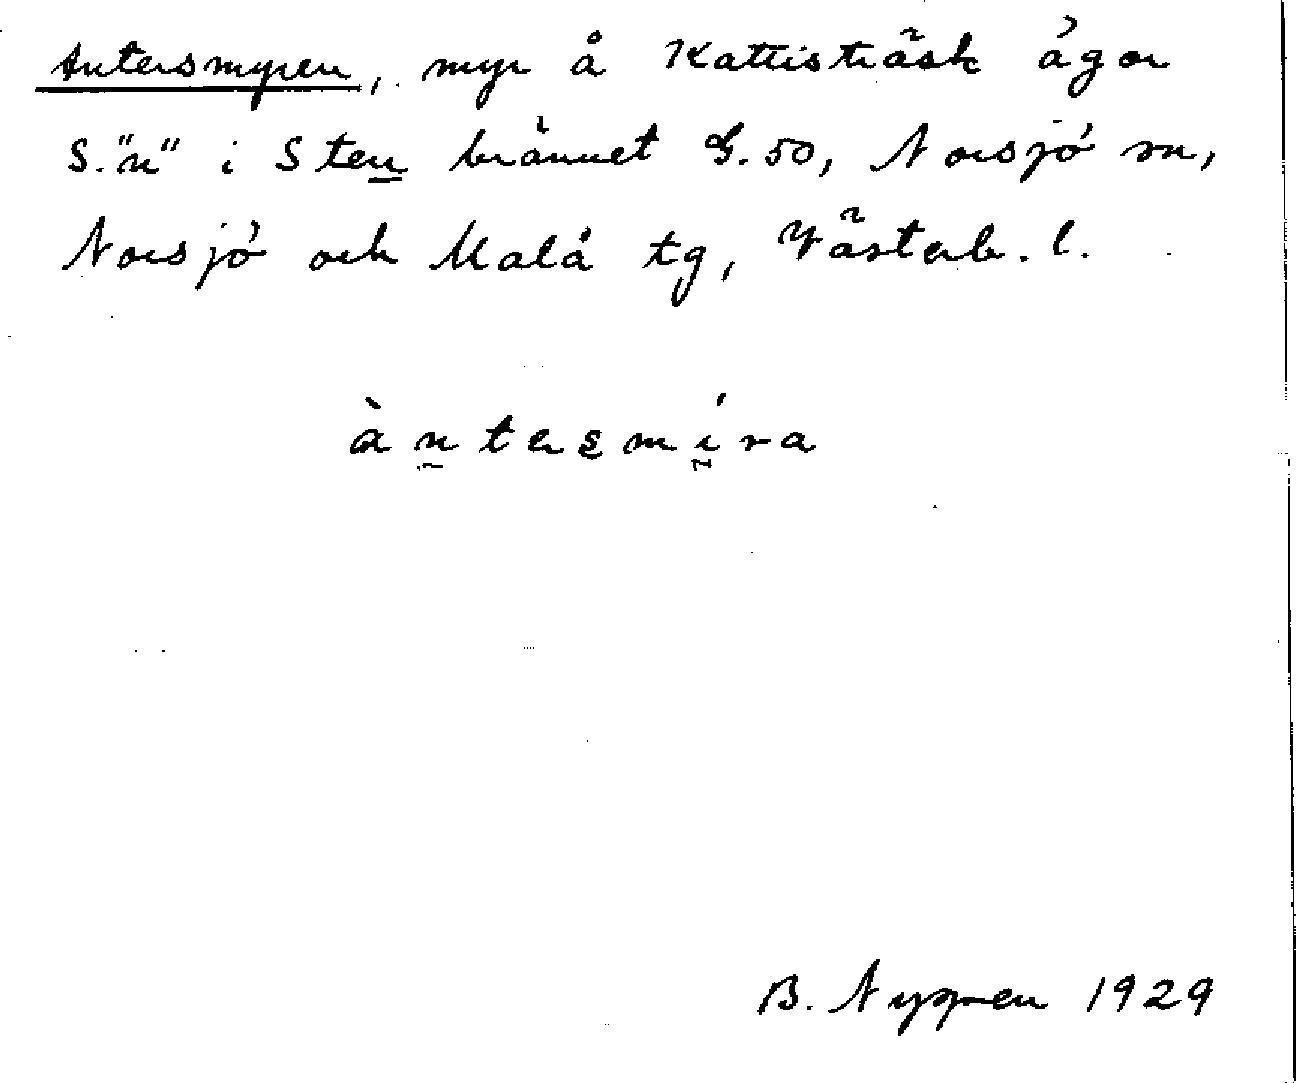 Antersmyren, myr å Kattisträsk ägor
S. "n" i Stenbrännet G. 50, Norsjö sn,
Norsjö och Malå tg, Västerb. l.
àntersmíra
B. Nyman 1929